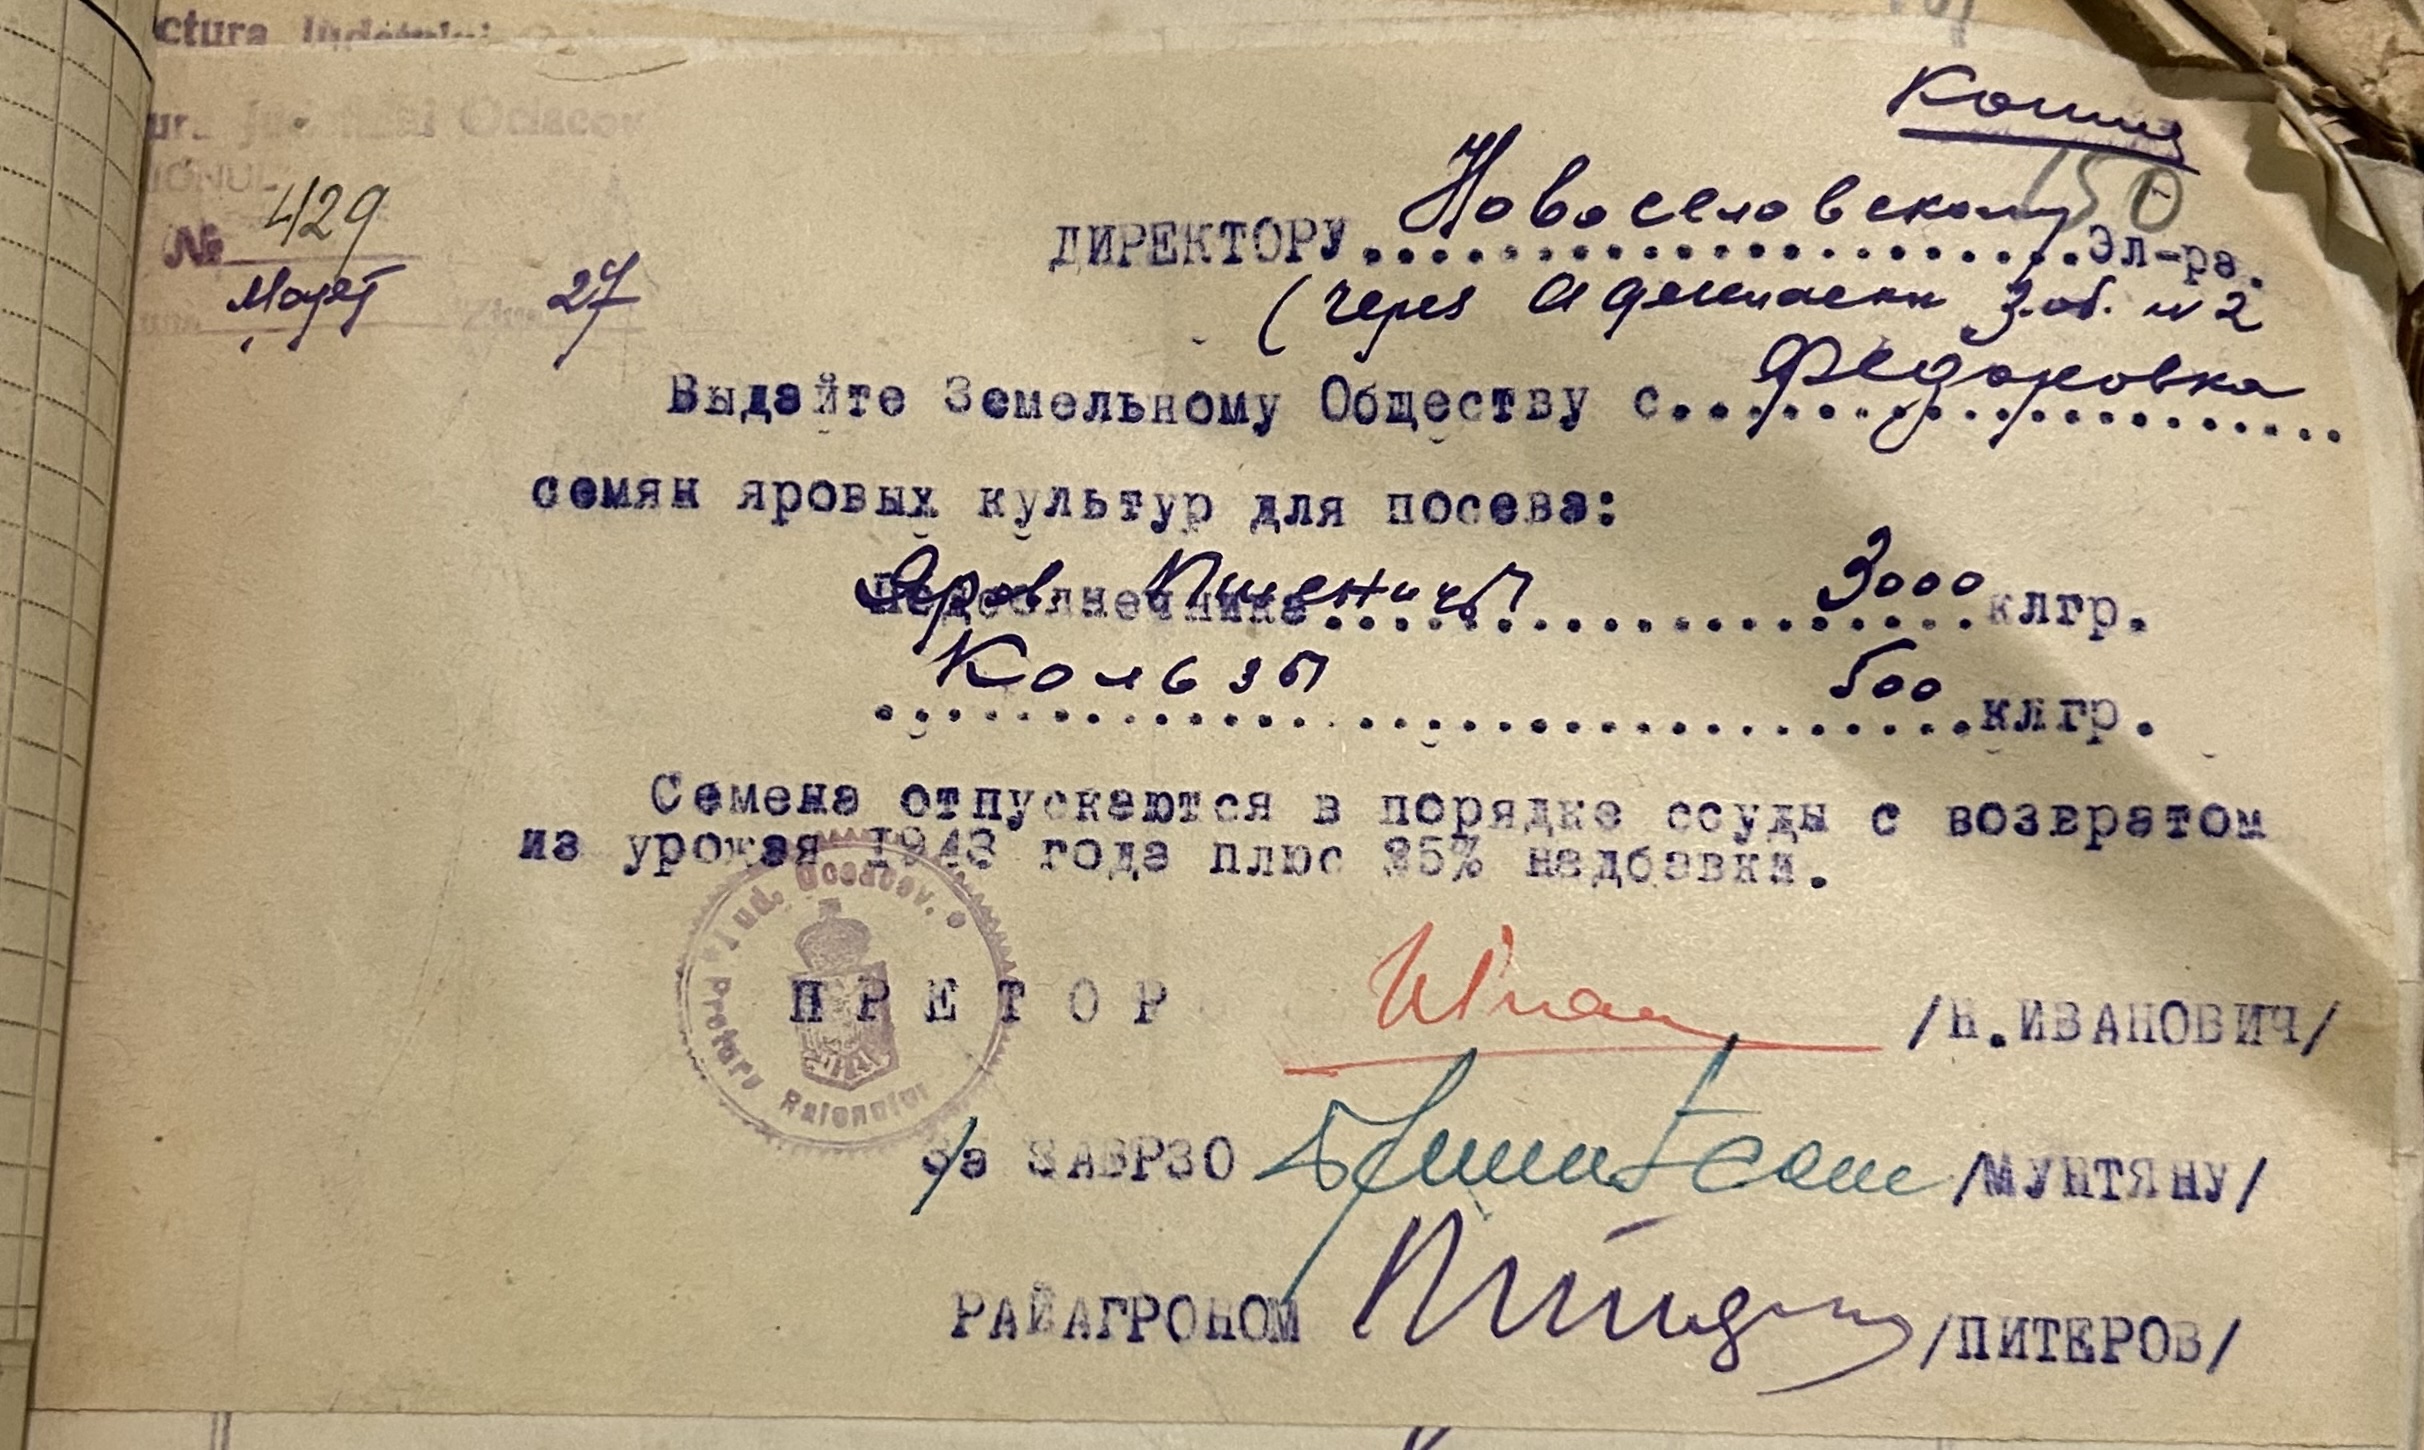 Копия
150
Ociacov
№ 429
Март 27
ДИРЕКТОРУ Новоселовскому эл-ра.
(через З.об. № 2
Выдайте Земельному Обществу с. Федоровка
семян яровых культур для посева:
Яров. Пшеницы 3000 клгр.
Кользы 500 клгр.
Семена отпускаются в порядке ссуды с возвратом
из урожая 1943 года плюс 25% надбавки.
Jud. Oceacov.
Pretura Raionului
ПРЕТОР /Н.ИВАНОВИЧ/
За ЗАВРЗО /МУНТЯНУ/
РАЙАГРОНОМ /ПИТЕРОВ/